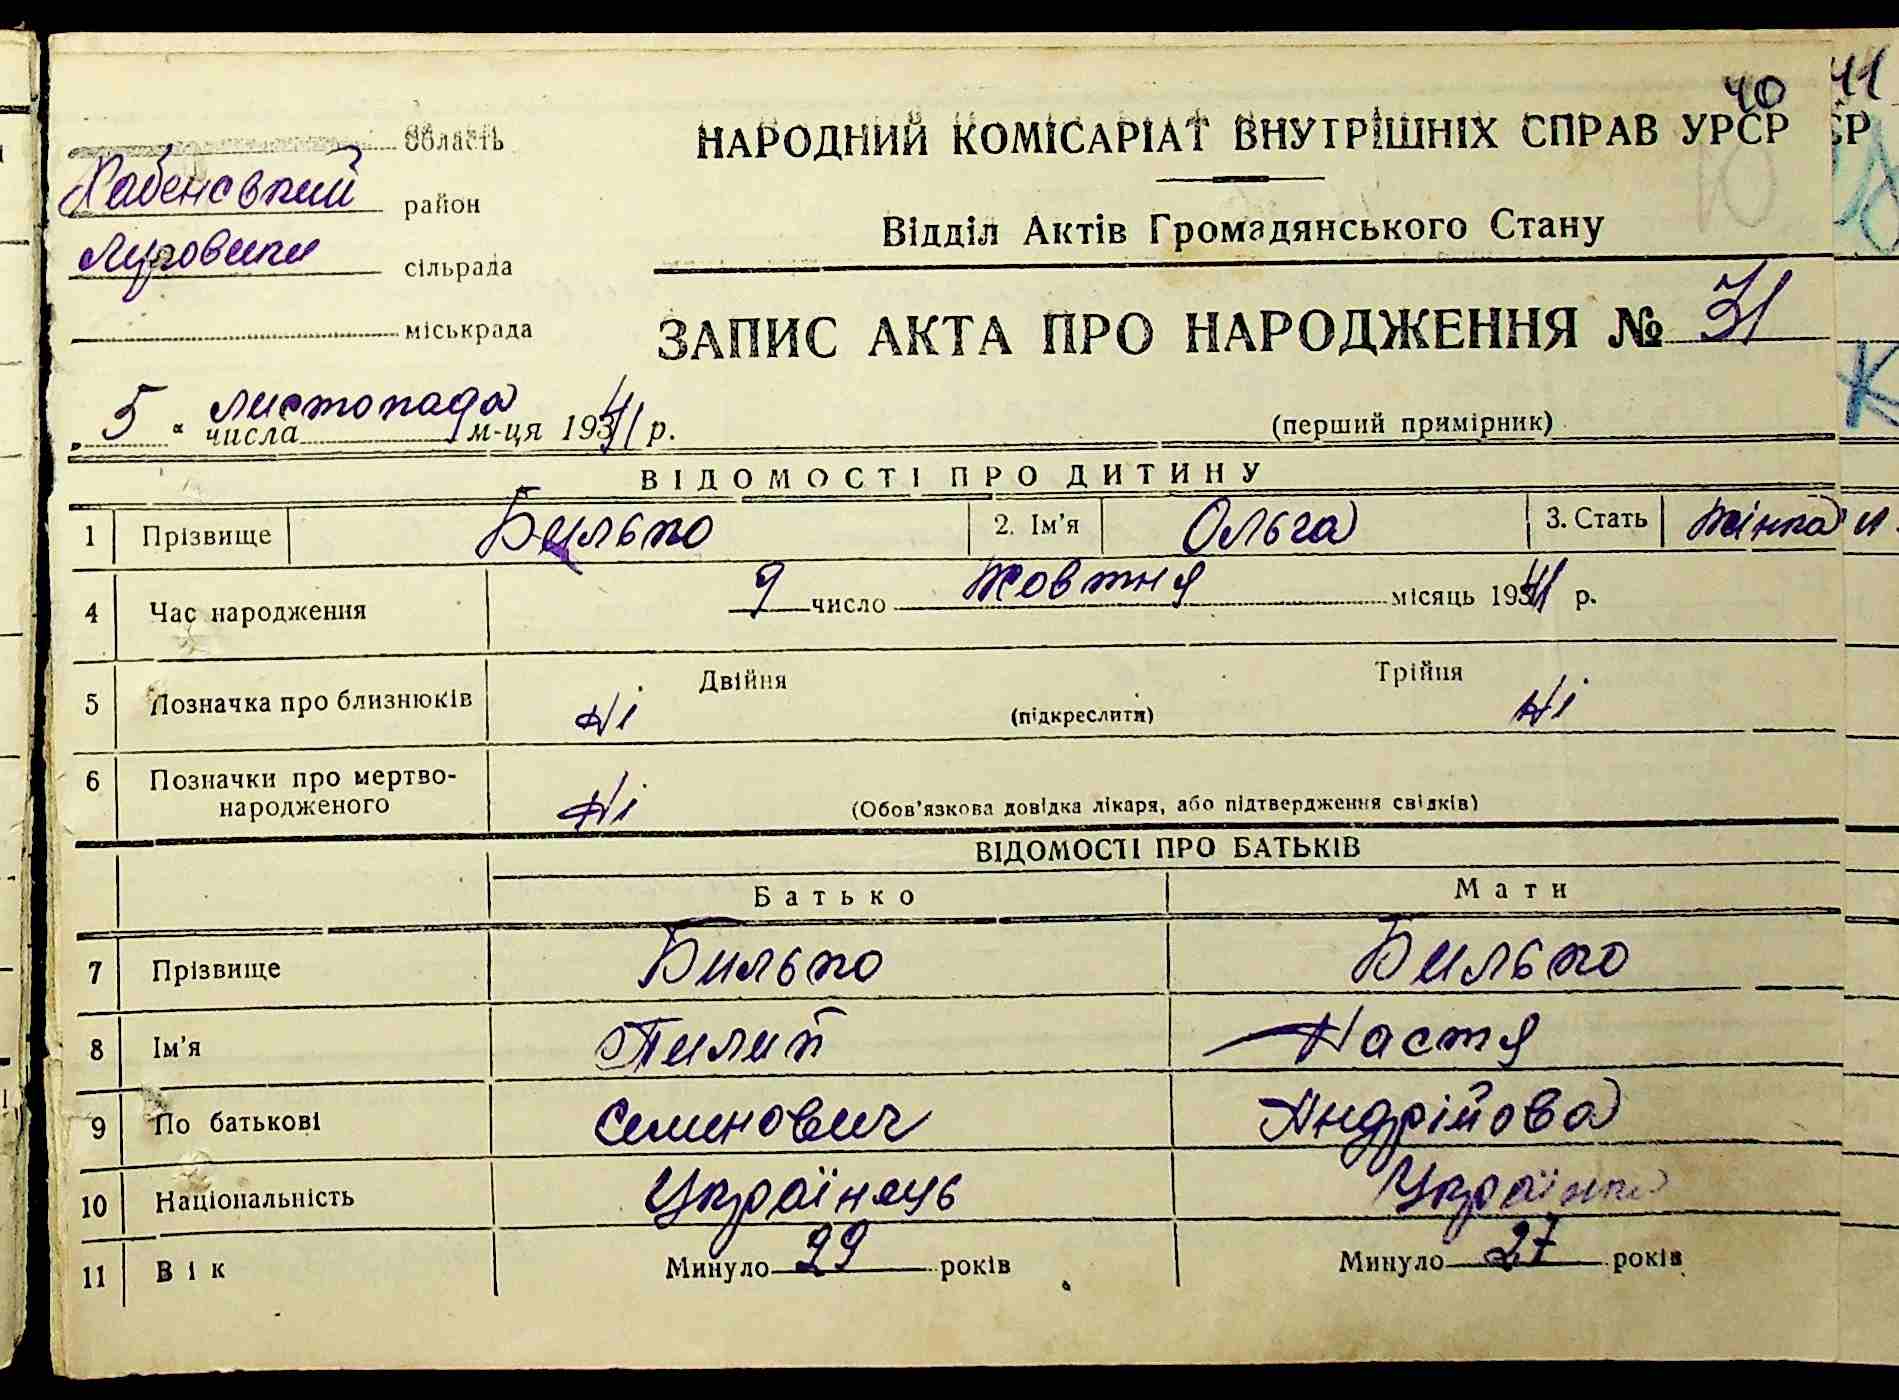 40
41
НАРОДНИЙ КОМІСАРІАТ ВНУТРІШНІХ СПРАВ УРСР
СР
Область
Хабенський район
Луговики сільрада
міськрада
Відділ Актів Громадянського Стану
ЗАПИС АКТА ПРО НАРОДЖЕННЯ № 31
„ 5 “ числа листопада м-ця 1941 р.
(перший примірник)
ВІДОМОСТІ ПРО ДИТИНУ
1 Прізвище Билько 2. Ім'я Ольга 3. Стать жінка
4 Час народження 9 число жовтня місяць 1941 р.
5 Позначка про близнюків Ні Двійня (підкреслити) Трійня Ні
6 Позначки про мертво-
народженого Ні (Обов'язкова довідка лікаря, або підтвердження свідків)
ВІДОМОСТІ ПРО БАТЬКІВ
Батько Мати
7 Прізвище Билько Билько
8 Ім'я Пилип Настя
9 По батькові Семенович Андрійова
10 Національність Українець Українка
11 Вік Минуло 29 років Минуло 27 років